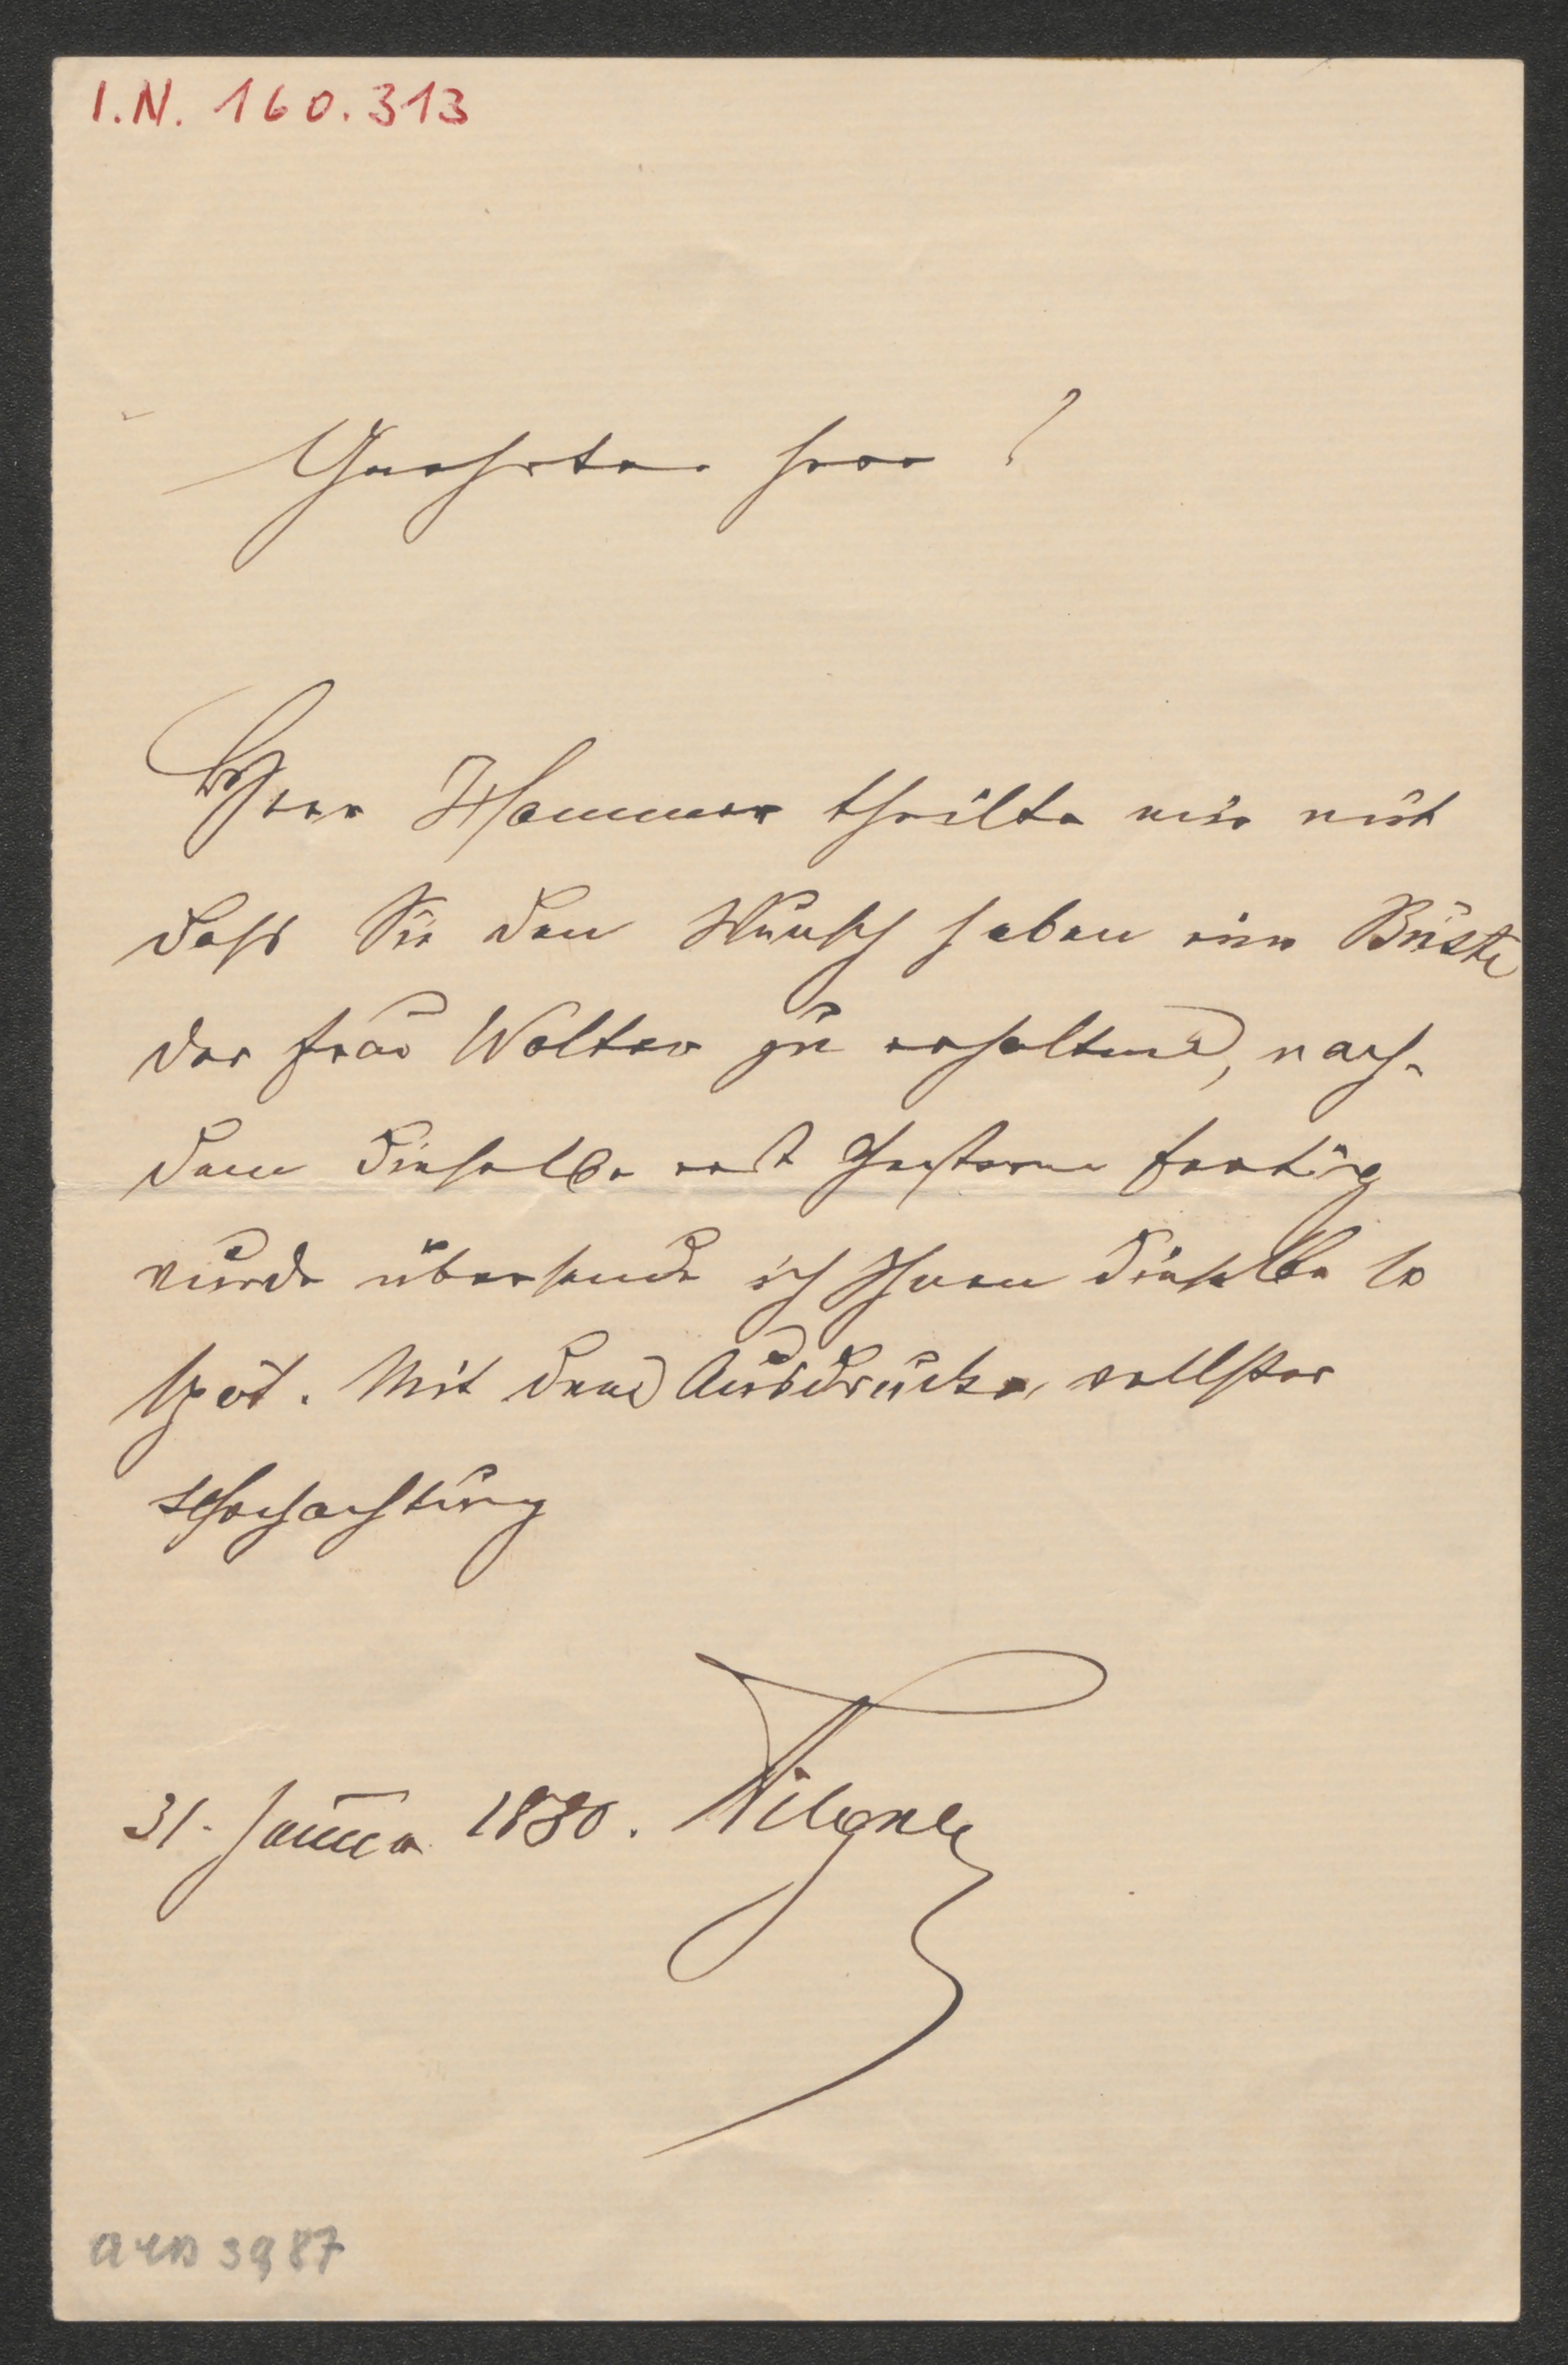 I.N. 160.313
Geehrter Herr!
Herr Hammer theilte mir mit
daß Sie den Wunsch haben eine Büste
der Frau Wolter zu erhalten, nach-
dem dieselbe erst Gestern fertig
wurde übersende ich Ihnen dieselbe so
spät. Mit dem Ausdrucke, vollster
Hochachtung
31. Januar 1880. Tilgner
3987